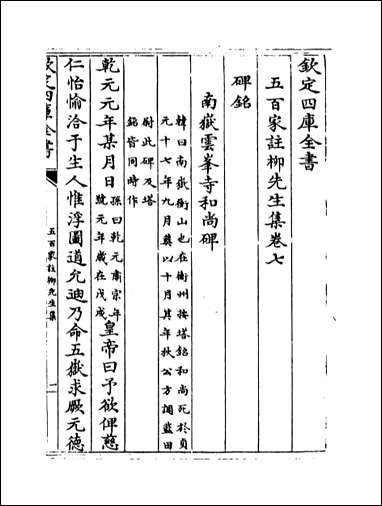 欽定四庫全書
五百家註柳先生集卷七
碑銘
南嶽雲峯寺和尚碑
韓曰南嶽衡山也在衡州按塔銘和尚死於貞
元十七年九月奠以十月其年秋公方調藍田
尉此碑及塔
銘皆同時作
乾元元年某月日
孫曰乾元肅宗年
號元年歲在戊戌
皇帝曰予欲俾慈
仁怡愉洽于生人惟浮圖道允迪乃命五嶽求厥元德
欽定四庫全書
五百家註柳先生集
一